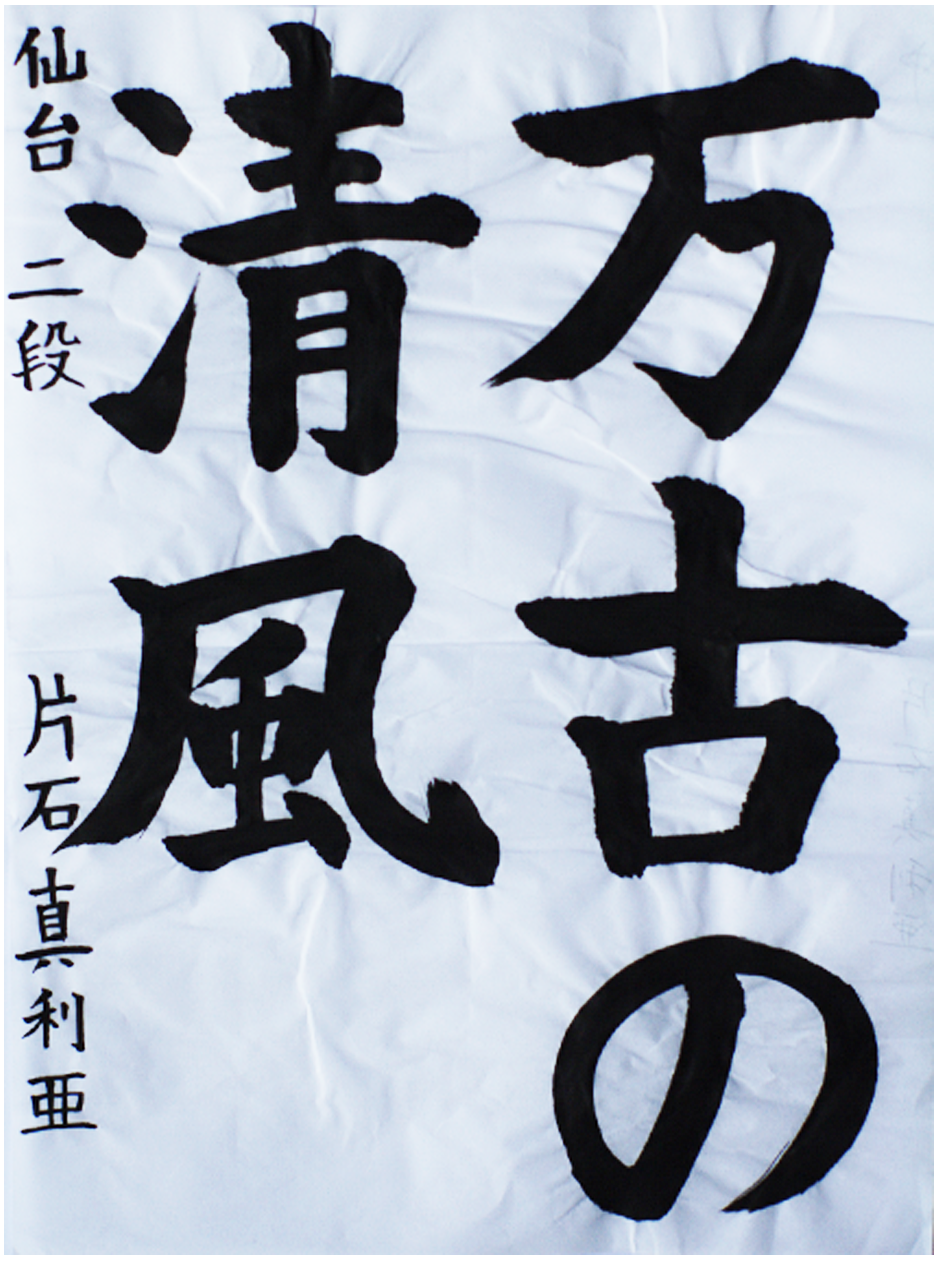 万古の
清風
仙台 二段 片石真利亜